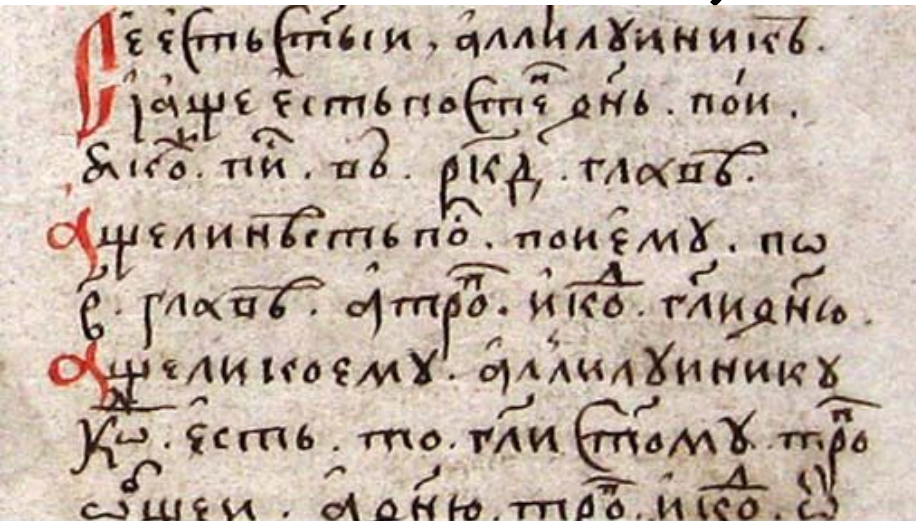 Се єсть ст҃ыи, аллилꙋиникъ.
Сіѧ аще єсть постъ дн҃ь. пои.
ꙗко. пи. въ. рк҃д. глав.
аще ли нѣсть по. поиємꙋ. пѡ
в. глав. а троп. и ко. гл҃и дн҃ю.
аще ли коємꙋ. аллилꙋиникꙋ
кѡ. єсть. то. гл҃и ст҃омꙋ. тро
ѡбщеи. а дн҃ю. тро. и ко.